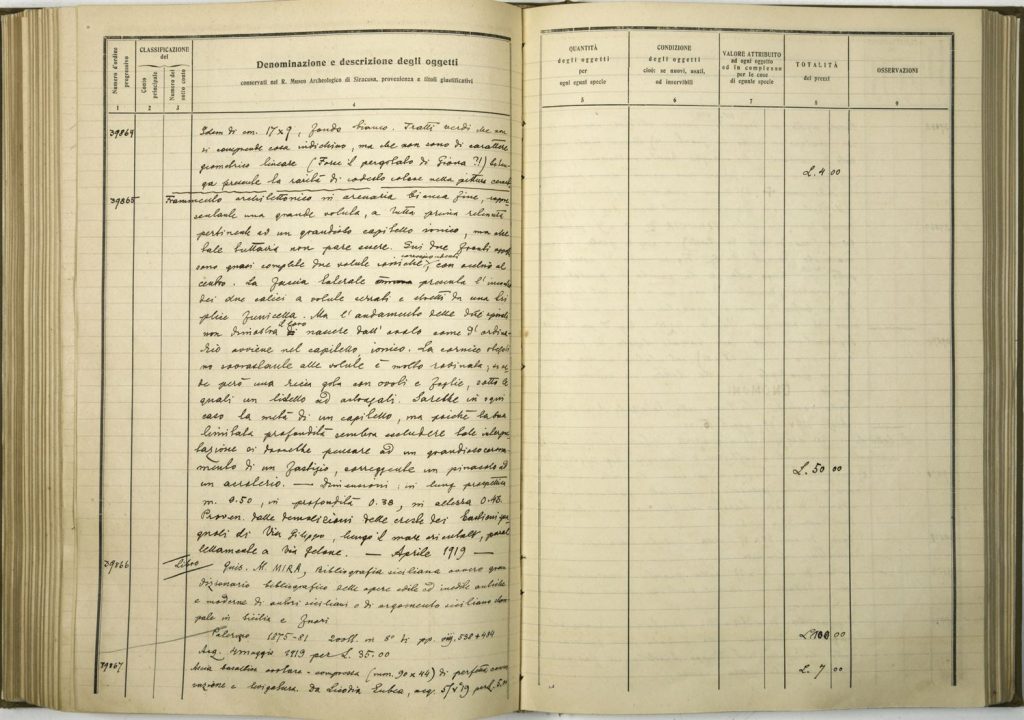 Numero d'ordine progressivo
CLASSIFICAZIONE del
Conto principale
Numero del sotto conto
Denominazione e descrizione degli oggetti
conservati nel R. Museo Archeologico di Siracusa, provenienza e titoli giustificativi
1 2 3 4
39864 Idem di cm. 17x9, fondo bianco. Tratti verdi che non
si comprende cosa indichino, ma che non sono di carattere
geometrico lineare (Forse il pergolato di Giona ?!)
la rarità di codesto colore nella pittura
39865 Frammento architettonico in arenaria bianca fine,
sentante una grande voluta, a tutta prima
pertinente ad un grandioso capitello ionico, ma che
tale tuttavia non pare essere. Sui due fronti
sono quasi complete due volute ioniche, corrispondenti con occhio al
centro. La faccia laterale presenta l'
dei due calici a volute serrati e stretti da una
plice funicella. Ma l'andamento delle due
non dimostra il loro nascere dall'ovolo come d'ordina-
rio avviene nel capitello ionico. La cornice
no sovrastante alle volute è molto rovinata;
de però una ricca gola con ovoli e foglie, sotto le
quali un listello ad astragali. Sarebbe in ogni
caso la metà di un capitello, ma poichè la sua
limitata profondità sembra escludere tale interpre-
tazione ci dovrebbe pensare ad un grandioso corona-
mento di un fastigio, sorreggente un pinacolo ad
un acroterio. — Dimensioni: in lung. prospettica
m. 0.50, in profondità 0.38, in altezza 0.48.
Proven. dalle demolizioni delle creste dei Bastioni spa-
gnoli di Via Filippo, lungo il mare orientale, paral-
lellamente a Via Gelone. — Aprile 1919 —
39866 Libro Gius. M. MIRA, Bibliografia siciliana ovvero gran
dizionario bibliografico delle opere edite ed inedite antiche
e moderne di autori siciliani o di argomento siciliano stam-
pate in Sicilia e fuori
Palermo 1875-81 in 8° di pp. 538 + 484
Acq. maggio 1919 per L. 35.00
39867 Ascia basaltica compressa (mm. 90 x 44) di perfetta conser-
vazione e levigatura. Da Licodia Eubea, acq. 19 per L. 5.00
QUANTITÀ degli oggetti per ogni eguul specie
CONDIZIONE degli oggetti cioè: se nuovi, usati, od inservibili
VALORE ATTRIBUITO ad ogni oggetto od in complesso per le cose di eguale specie
TOTALITÀ dei prezzi
OSSERVAZIONI
5 6 7 8 9
L. 4 00
L. 50 00
L. 100 00
L. 7 00